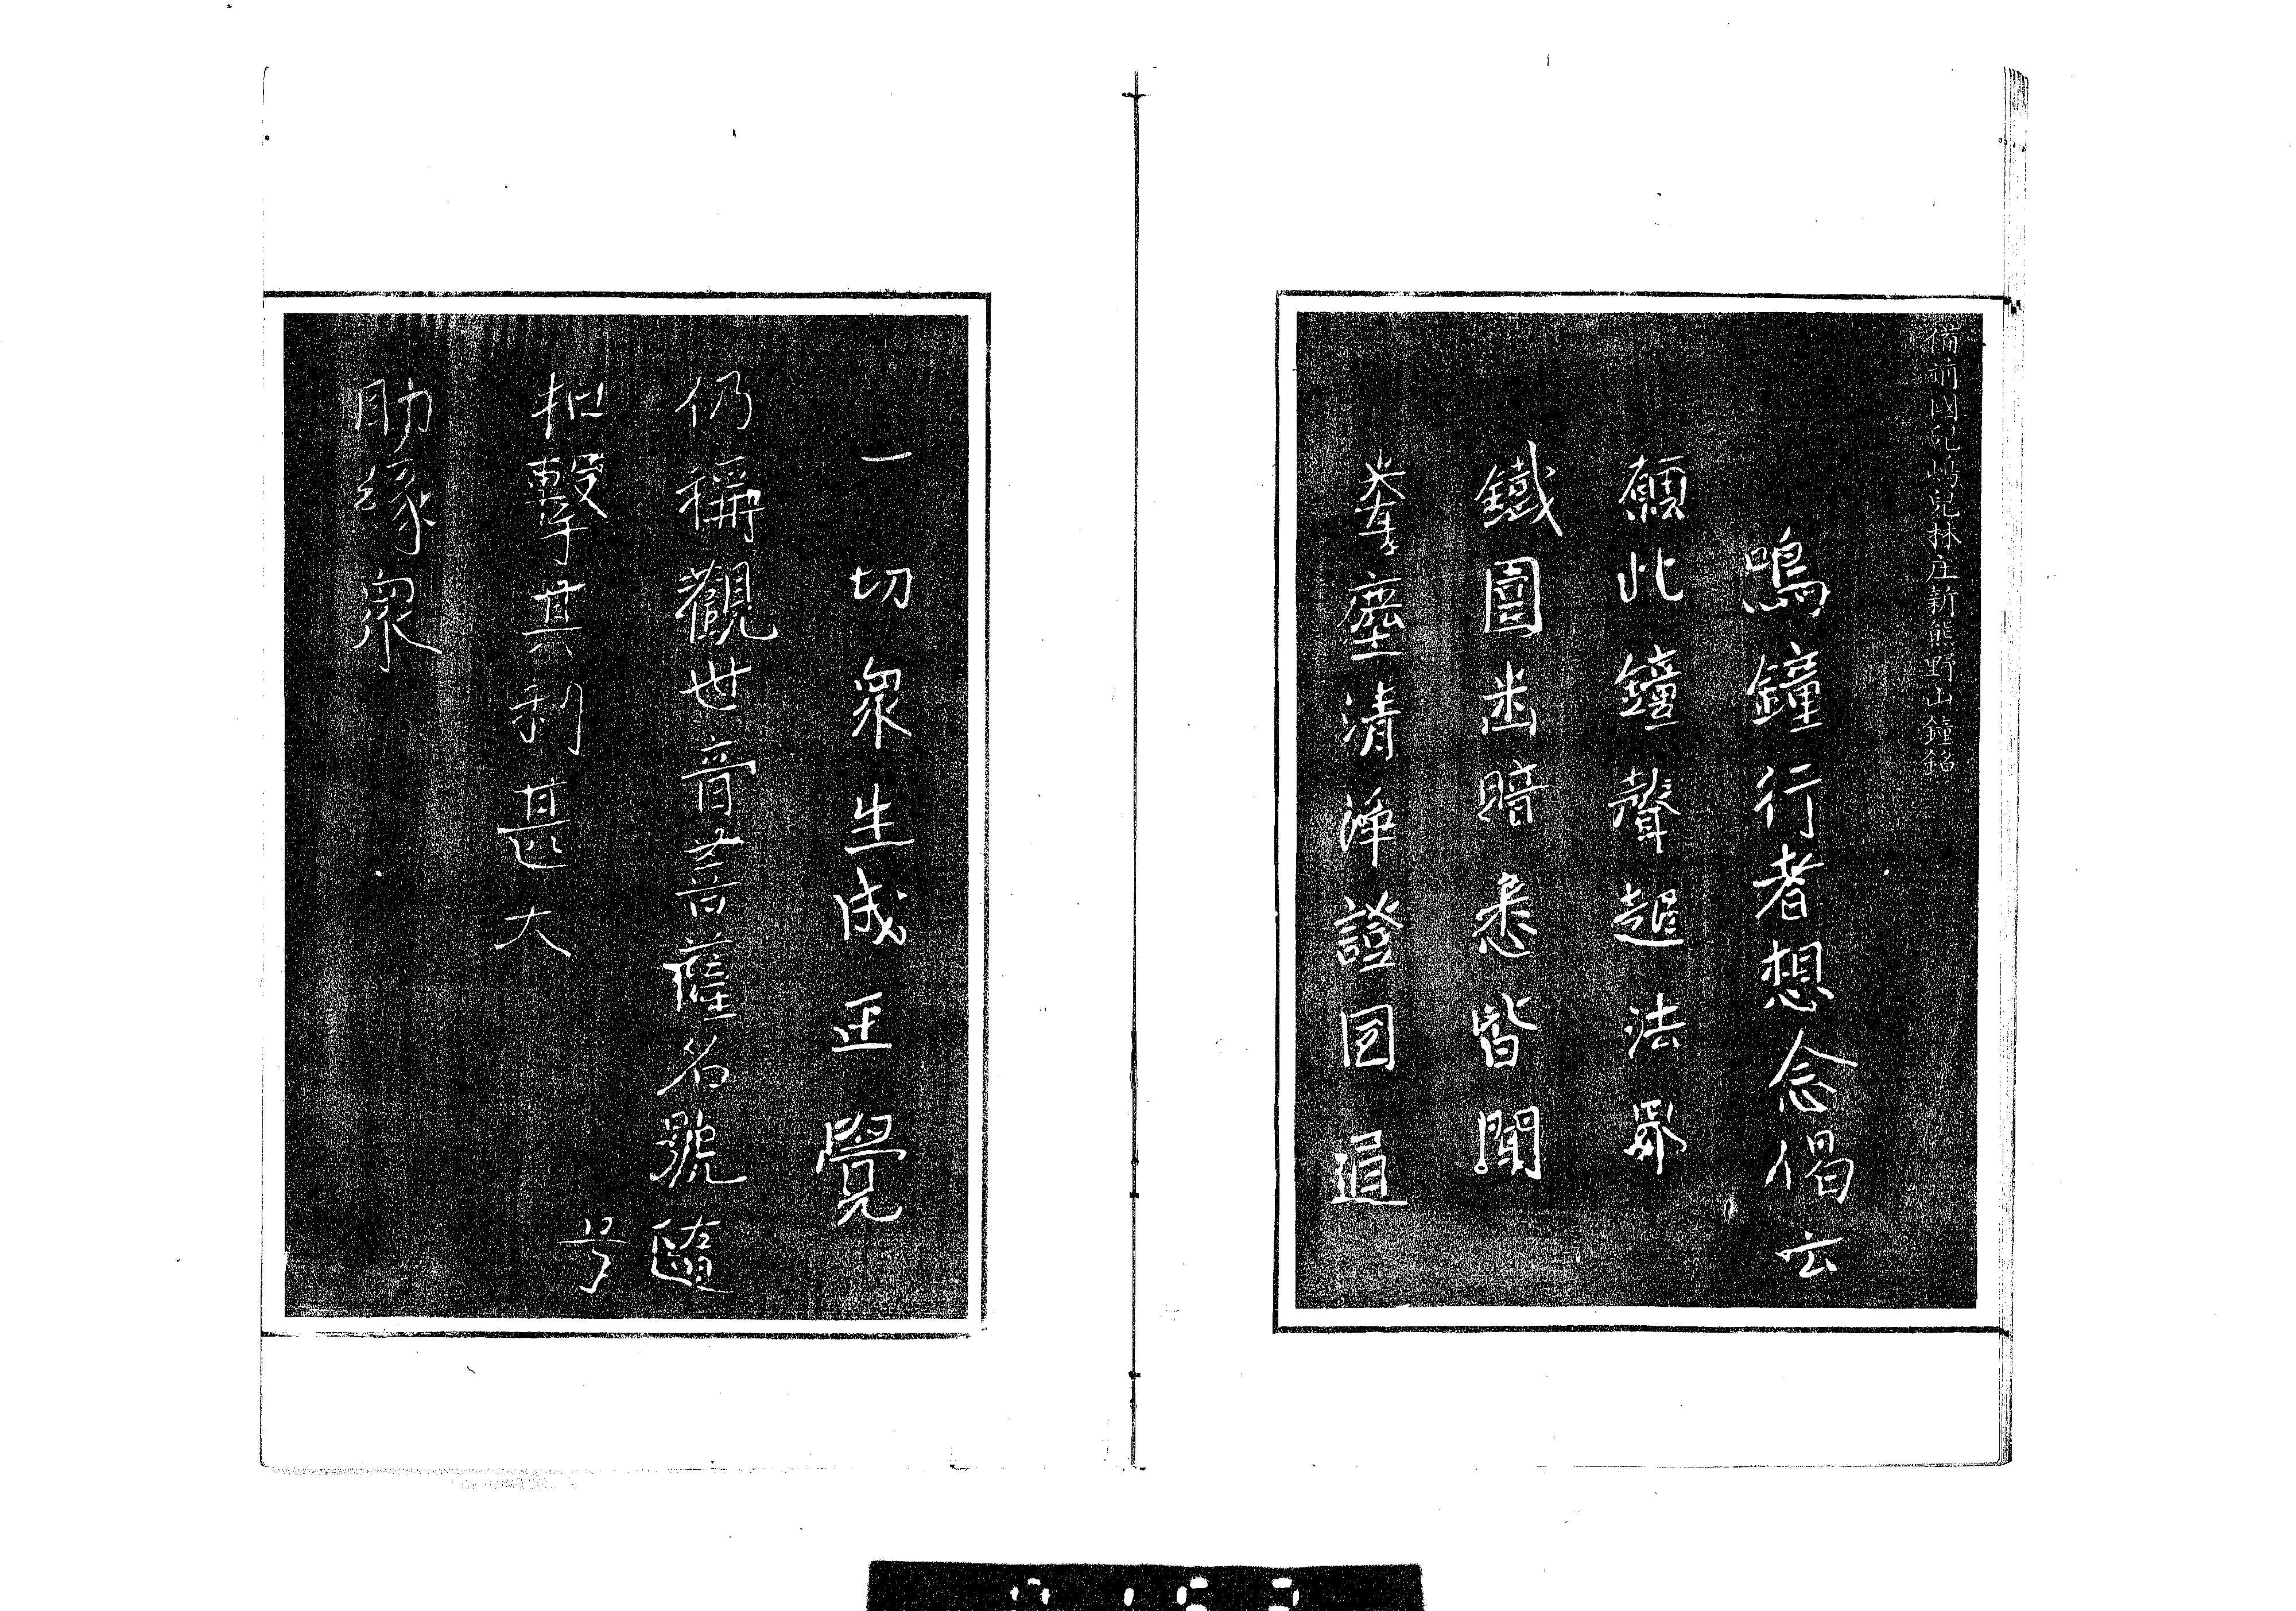 備前國児嶋兒林庄新熊野山鐘銘
鳴鐘行者想念偈云
願此鐘聲超法界
鐵圍幽暗悉皆聞
聞塵清淨證圓通
一切衆生成正覺
仍稱觀世音菩薩名號隨
号
扣擊其利甚大
助緣衆